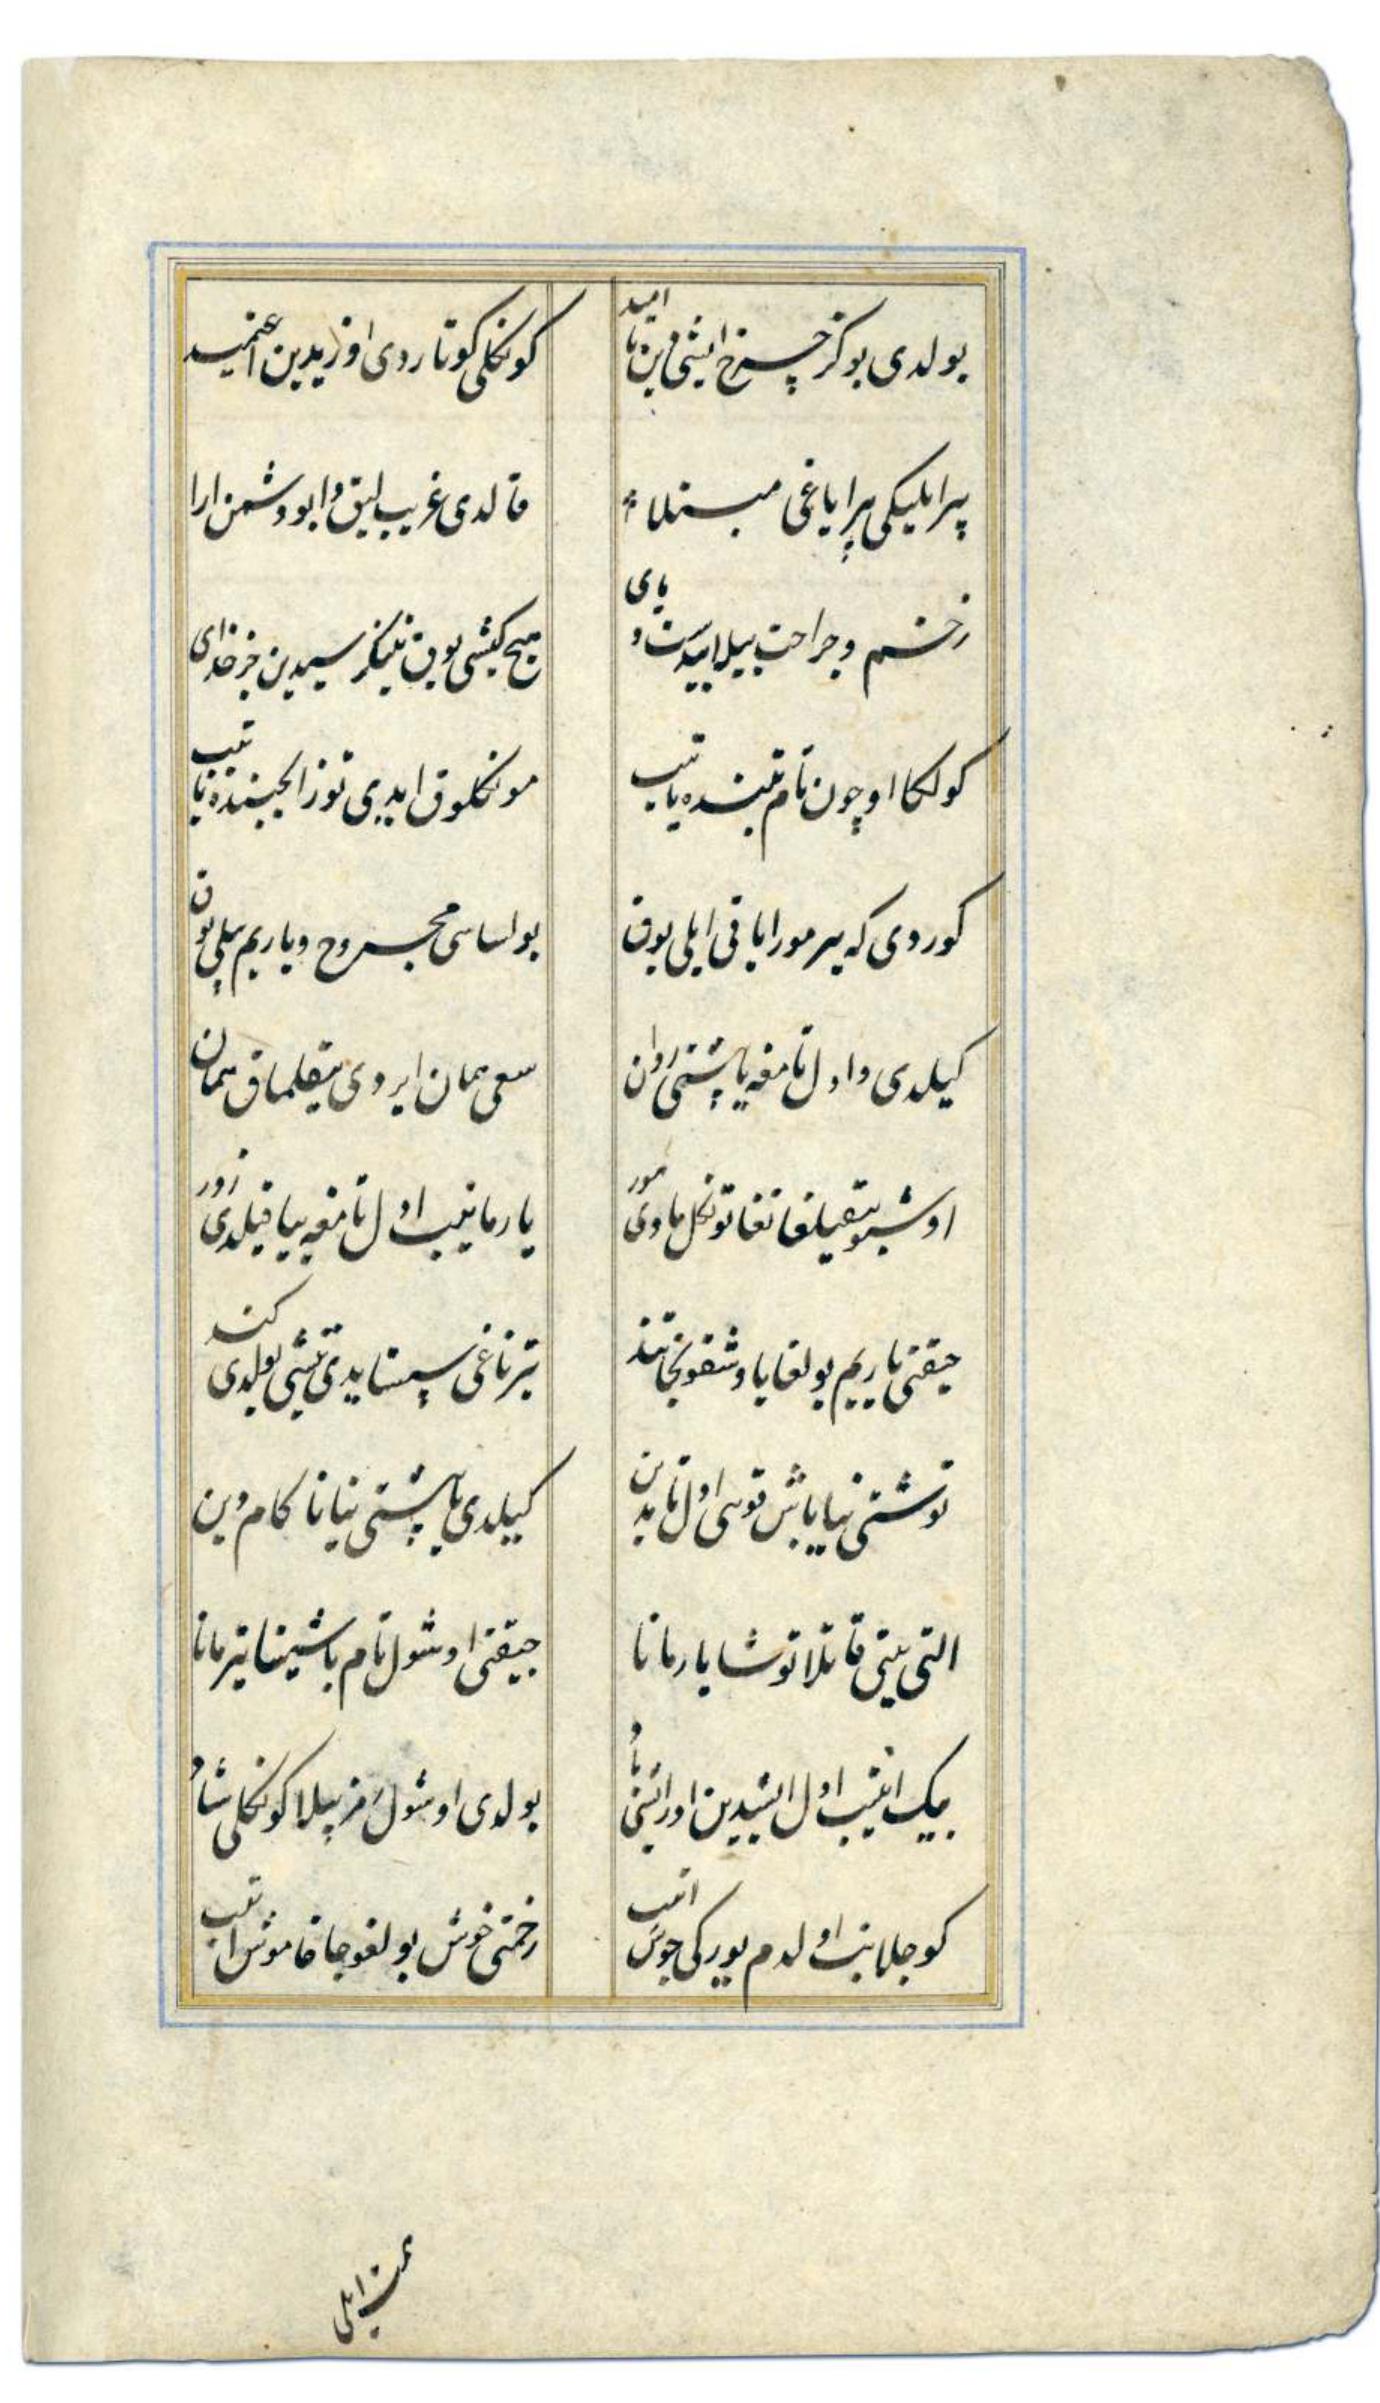 بولدی بو کز چرخ ایشی دین نا امید
کونکلی کوتاردی اوزیدین اعتمید
بیر ایلیکی بیر ایاغی مبتلا
قالدی غریب لیق دا بو دشمن ارا
زخم و جراحت بیلا بیدست و پای
هیچ کیشی یوق تینکر سیدین جز خدای
کولکا اوچون تام تیبنده یاتیب
مونکلوق ایدیی توز ایچینده تاتیب
کوردی که بیر مور ایاقی ایلی یوق
بولسا سی مجروح و یاریم بیلی یوق
کیلدی و اول تامغه یاپیشتی روان
سعی همان ایردی ییقیلماق همان
اوشبو ییقیلغانغا تونکل مادی مور
یارمانیب اول تامغه ینا قیلدی زور
چیقتی یاریم بولغای اوشقونچا تند
تیرناغی سیستایدی تیشی بولدی کند
توشتی ینا یاش قوسی اول تامدین
کیلدی یاپیشتی ینا ناکام دین
التی ییتی قاتلا توشا یارمانا
چیقتی اوشول تام باشینا تیرمانا
بیک ایتیب اول ایشیدین اوراتینی یاد
بولدی اوشول رمز بیلا کونکلی شاد
کوچلانیب اول دم یورکی جوش ایتیب
زخمتی خوش بولغوچا خاموش ایتیب